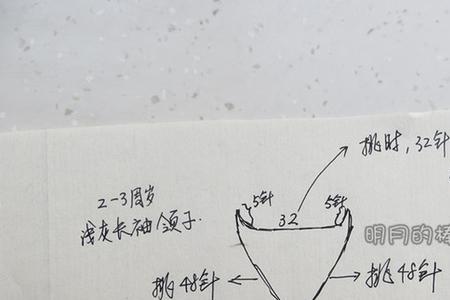 挑时，32针
2-3周岁
浅灰长袖领子.
5针
5针
32
明月的
挑48针
挑48针